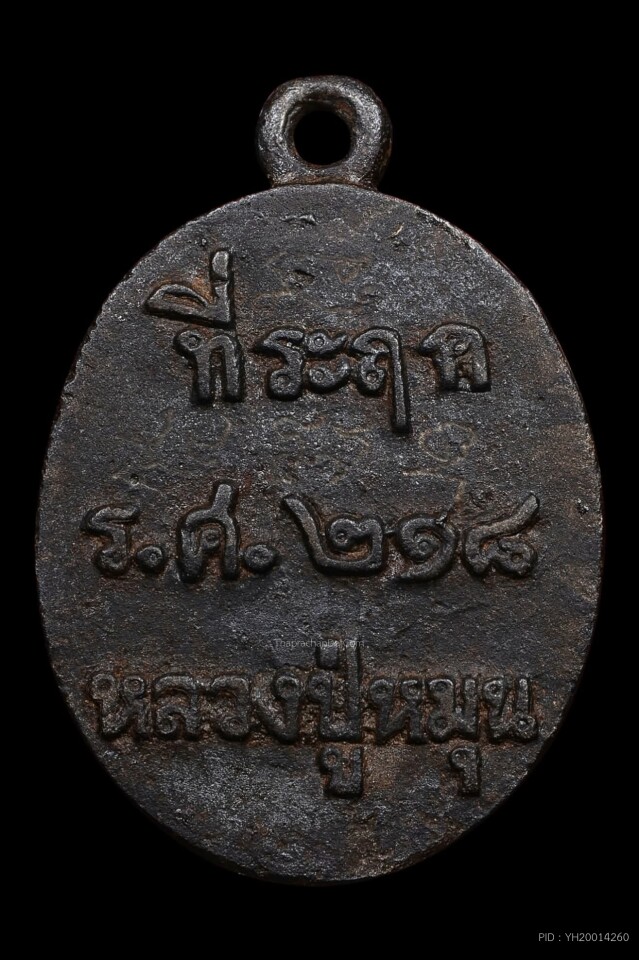 ที่ระฤค
ร.ศ.๒๑๘
หลวงปู่หมุน
Thaprachan
PID : YH20014260